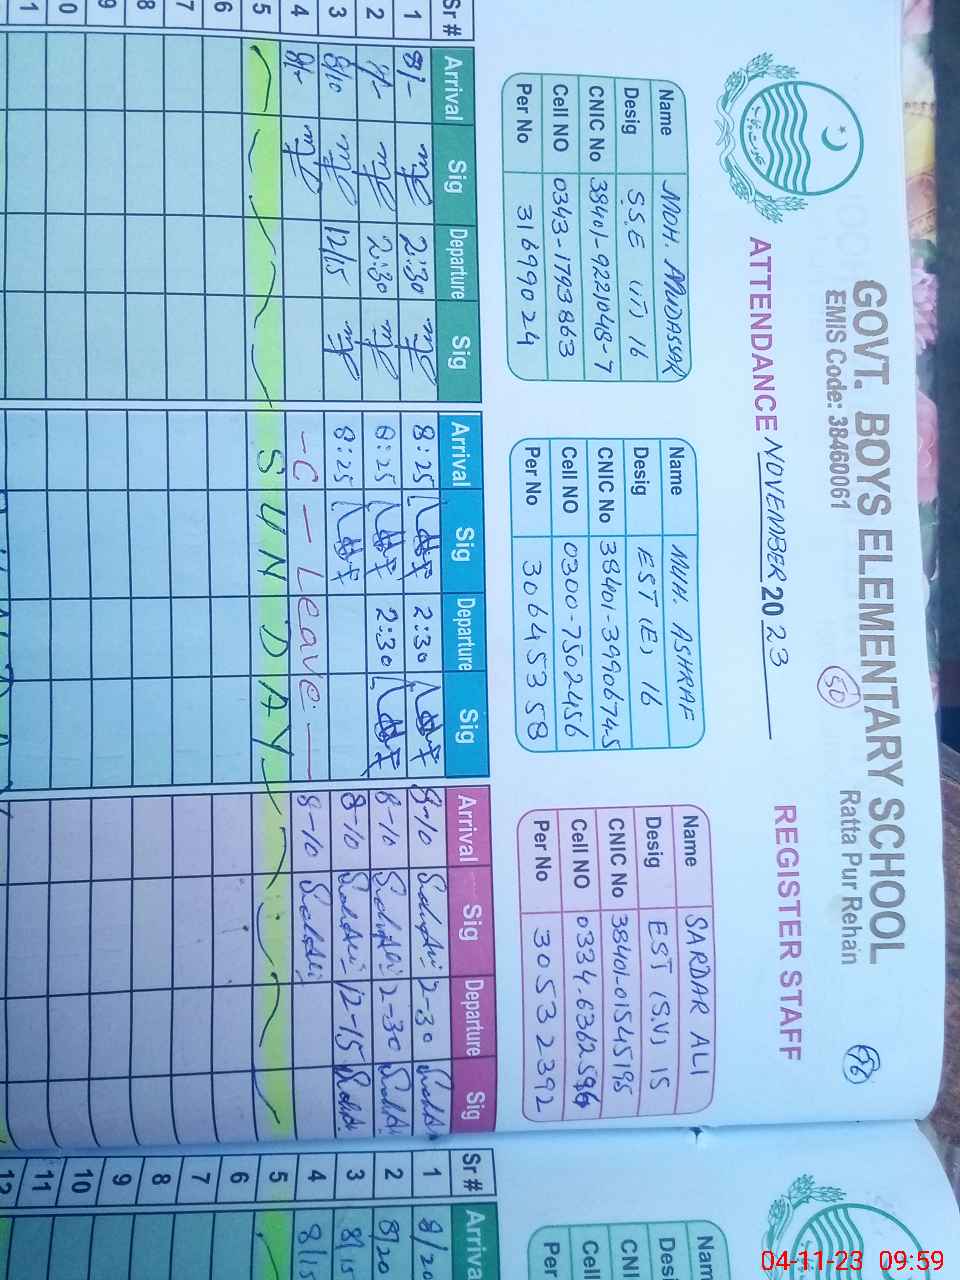 GOVT. BOYS ELEMENTARY SCHOOL
EMIS Code: 38460061
50
Ratta Pur Rehan
ATTENDANCE NOVEMBER 2023
REGISTER STAFF
Name MOH. MUDASSAR
Desig S.S.E (IT) 16
CNIC No 38401-9221048-7
Cell NO 0343-1793863
Per No 31699024
Name MUH. ASHRAF
Desig EST (E) 16
CNIC No 38401-3990674-5
Cell NO 0300-7502456
Per No 30645358
Name SARDAR ALI
Desig EST (S.V) 15
CNIC No 38401-01545195
Cell NO
Per No 30532392
Sr # Arrival Sig Departure Sig Arrival Sig Departure Sig Arrival Sig Departure Sig
1 8/- 2:30 8:25 2:30 8-10 2-30
2 2:30 8:25 2:30 8-10 2-30
3 8/10 12/15 8:25 8-10 12-15
4 8/- -C - Leave - 8-10
5 SUNDAY
6
7
8
9
10
11
Sr # Arriva
1 8/20
2 8/20
3 8/15
4 8/15
5
6
7
8
9
10
11
12
Nam
Desi
CNI
Cell
Per
04-11-23 09:59